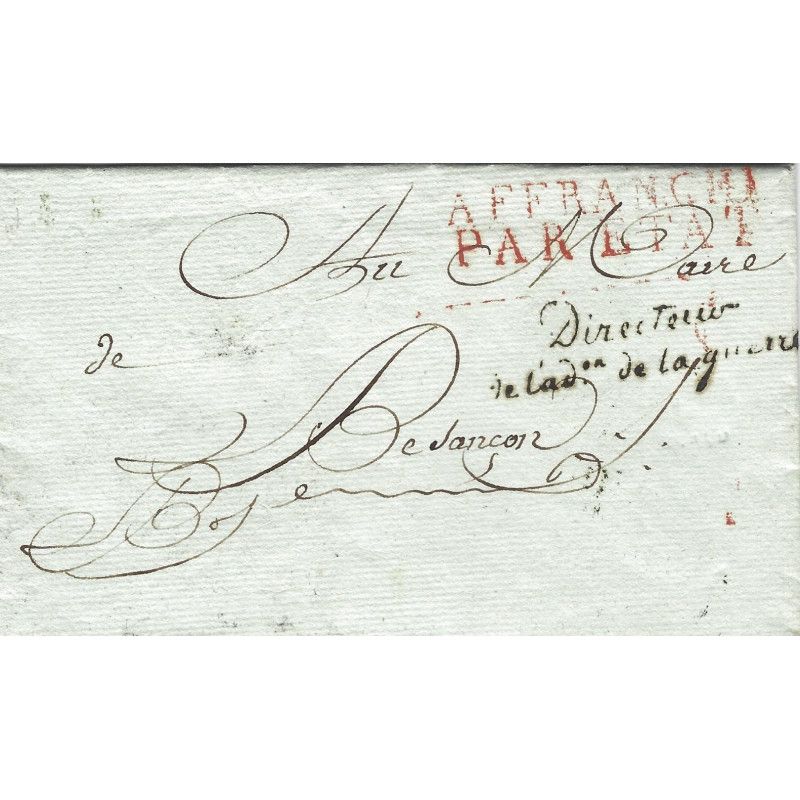 AFFRANCHI
PAR ETAT
Au Maire
Directeur
de l'adon de la guerre
de
Besançon